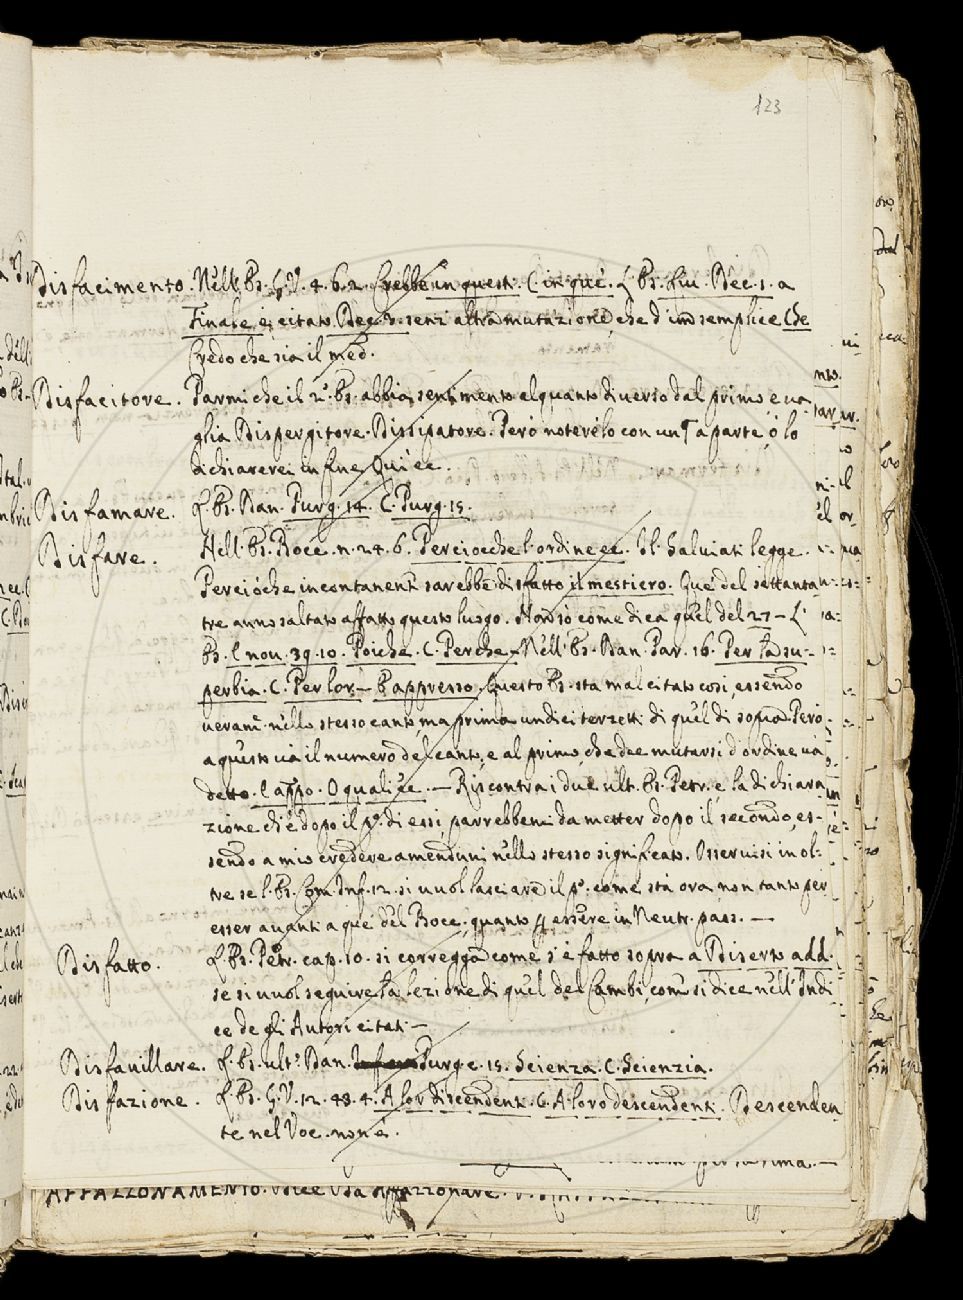 123
Disfacimento. Nell' Es. G.V. 4. 6. 2. Crebbe in questi. C. in que'. L' Es. Liv. Dec. 1. a
Finale è citato Dec. 3. senz' altra mutazione, che d' un semplice Che
Credo che sia il med.
Disfacitore. Parmi che il 2.° Es. abbia sentimento alquanto diverso dal primo, e va-
glia Dispergitore. Dissipatore. Però noterelo con un ¶ a parte, ò lo
dichiarerei in fine Qui ec.
Disfamare. L' Es. Dan. Purg. 14. C. Purg. 15.
Disfare. Nell' Es. Bocc. n. 24. 6. Percioche l' ordine ec. Il Salviati legge.
Percioche incontanen.te sarebbe disfatto il mestiero. Que' del settanta
tre anno saltato affatto questo luogo. Non sò come dica quel del 27 – L'
Es. C nov. 39. 10. Poiche. C. Perche – Nell' Es. Dan. Par. 16. Per la su-
perbia. C. Per lor – E appresso. Questo Es. sta mal citato così, essendo
veram.te nello stesso canto, ma prima undici terzetti di quel di sopra. Però
a questo và il numero del canto, e al primo, che dee mutarsi d' ordine và
detto. E appo. O quali ec. – Riscontra i due ult. Es. Petr. e la dichiara-
zione ch' è dopo il p.° di essi, parrebbemi da metter dopo il secondo, es-
sendo a mio credere amenduni nello stesso significato. Osservisi inol-
tre se l' Es. Com. Inf. 12. si vuol lasciare il p.° come stà ora non tanto per
esser avanti a que' del Bocc. quanto p essere in Neutr. pass. –
Disfatto. L' Es. Petr. cap. 10. si corregga come s' è fatto sopra a Diserto add.
se si vuol seguire la lezione di quel del Cambi, com' si dice nell' Indi
ce degli Autori citati –
Disfavillare. L' Es. ult.° Dan. Purg. c. 15. Scienza. C. Scienzia.
Disfazione. L' Es. G.V. 12. 48. 4. A lor discendenti. C. A loro descendenti. Descenden
te nel Voc. non è.
AFFAZZONAMENTO. Affazzonare.